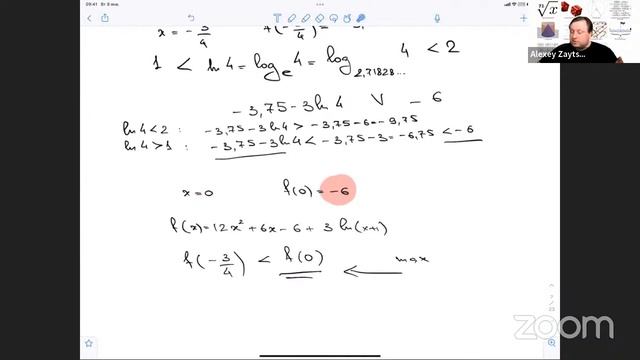 09:41 Вт 9 янв.
x = - 3/4
1 < ln 4 = log_e 4 = log_2,71828... 4 < 2
- 3,75 - 3 ln 4 V - 6
ln 4 < 2 : - 3,75 - 3 ln 4 > - 3,75 - 6 = - 9,75
ln 4 > 1 : - 3,75 - 3 ln 4 < - 3,75 - 3 = - 6,75 < - 6
x = 0 f(0) = - 6
f(x) = 12x² + 6x - 6 + 3 ln(x+1)
f(- 3/4) < f(0) max
Alexey Zayts...
zoom